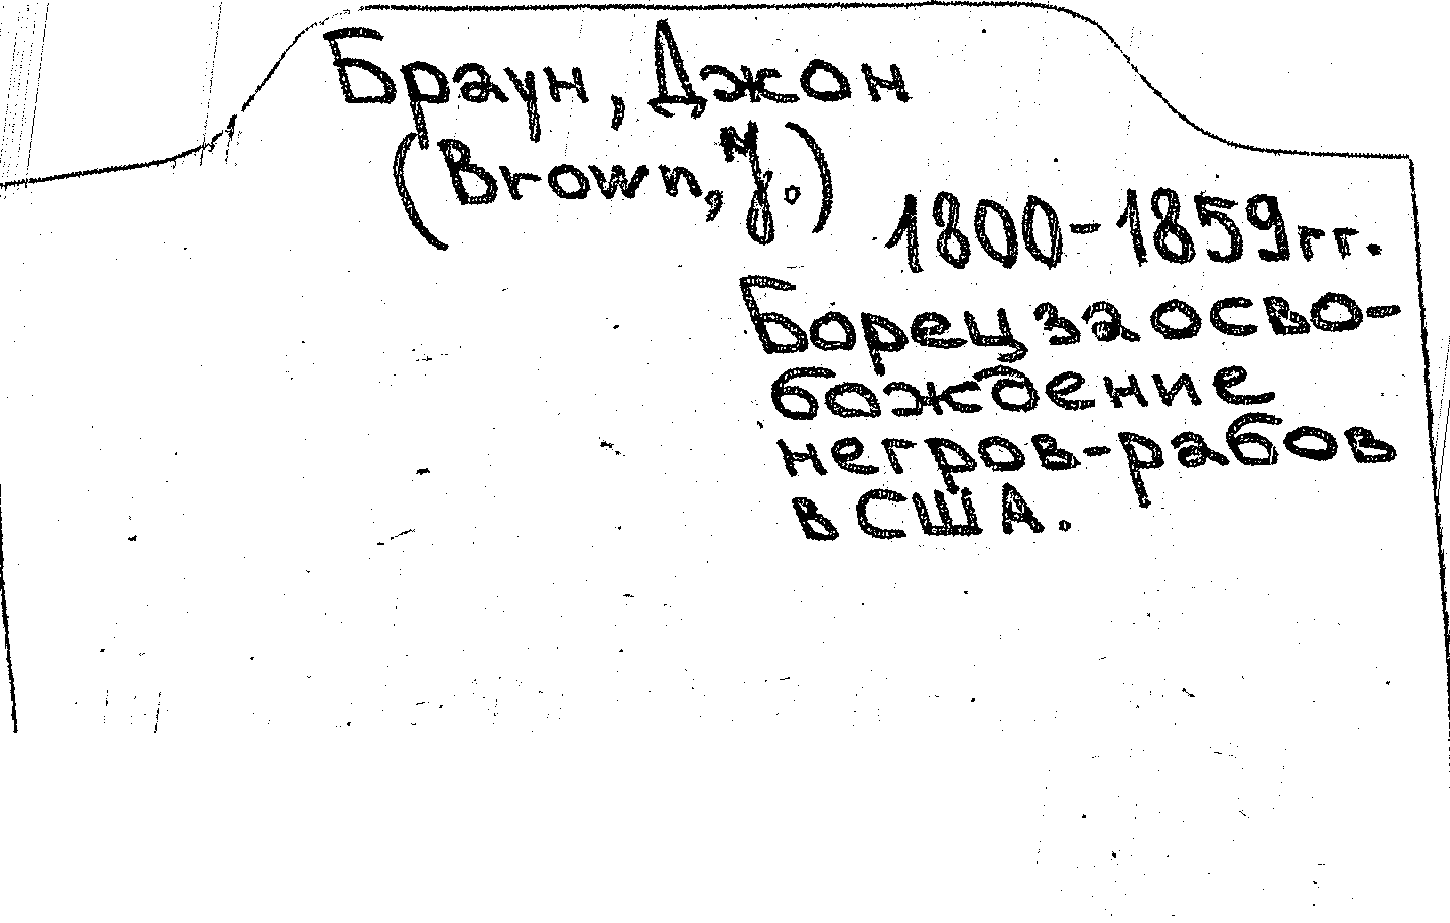 Браун, Джон
(Brown, J.)
1800-1859гг.
Борец за осво-
бождение
негров-рабов
в США.